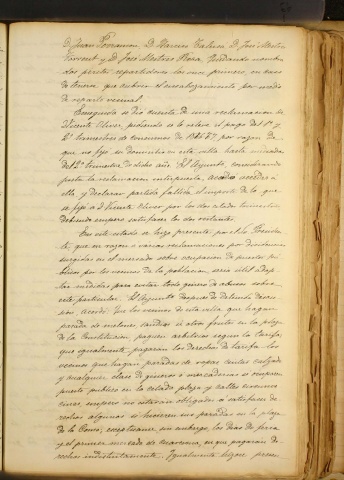 D. Juan Forramon, D. Narciso Taluse, D. José Mestre
Torrent y D. José Mestres Rosa. Quedando nombra
dos peritos repartidores los once primeros, en caso
de tenerse que cubrir el encabezamiento por medio
de reparto vecinal.
Enseguida se dio cuenta de una reclamacion de
Vicente Oliver, pidiendo se le releve el pago del 1º y
2º trimestres de consumos de 1886 á 87, por razon de
que no fijó su domicilio en esta villa hasta mediados
del 2º trimestre de dicho año. El Ayunto. considerando
justa la reclamacion interpuesta, acordó acceder á
ella y declarar partida fallida el importe de lo que
se fijó á D. Vicente Oliver por los dos citados trimestres
debiendo empero satisfacer los dos restantes.
En este estado se hizo presente por el Sr. Presiden
te, que en razon á varias reclamaciones por disensiones
surgidas en el mercado sobre ocupacion de puestos pú
blicos por los vecinos de la poblacion, seria util adop
tar medidas para evitar todo genero de abusos sobre
este particular. El Ayunto. despues de detenida discu
sion acordó: Que los vecinos de esta villa que hagan
parada de melones, sandias ú otro fruto en la plaza
de la Constitucion paguen arbitrios segun la tarifa,
que igualmente pagaran los derechos de tarifa los
vecinos que hagan paradas de ropas cintas calzado
y cualquier clase de generos ó mercaderias si ocupan
puesto publico en la citada plaza y calles circunve
cinas, empero no estaran obligados á satisfacer de
rechos algunos si hicieren sus paradas en la plaza
de la Creu, exceptuanse sin embargo los dias de feria
y el primer mercado de cuaresma, en que pagaran de
rechos indistintamente. Igualmente sigue